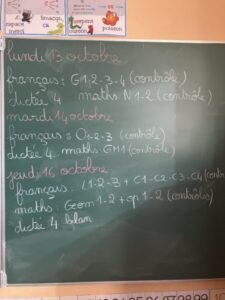 espace
limaçon
ça
serpent
poisson
lundi 13 octobre
français : G1-2-3-4 (contrôle)
dictée 4 maths N1-2 (contrôle)
mardi 14 octobre
français : O1-2-3 (contrôle)
dictée 4 maths GM1 (contrôle)
jeudi 16 octobre
français : L1-2-3 + C1-C2-C3-C4 (contr
maths : Geom 1-2 + op 1-2 (contrôles)
dictée 4 bilan